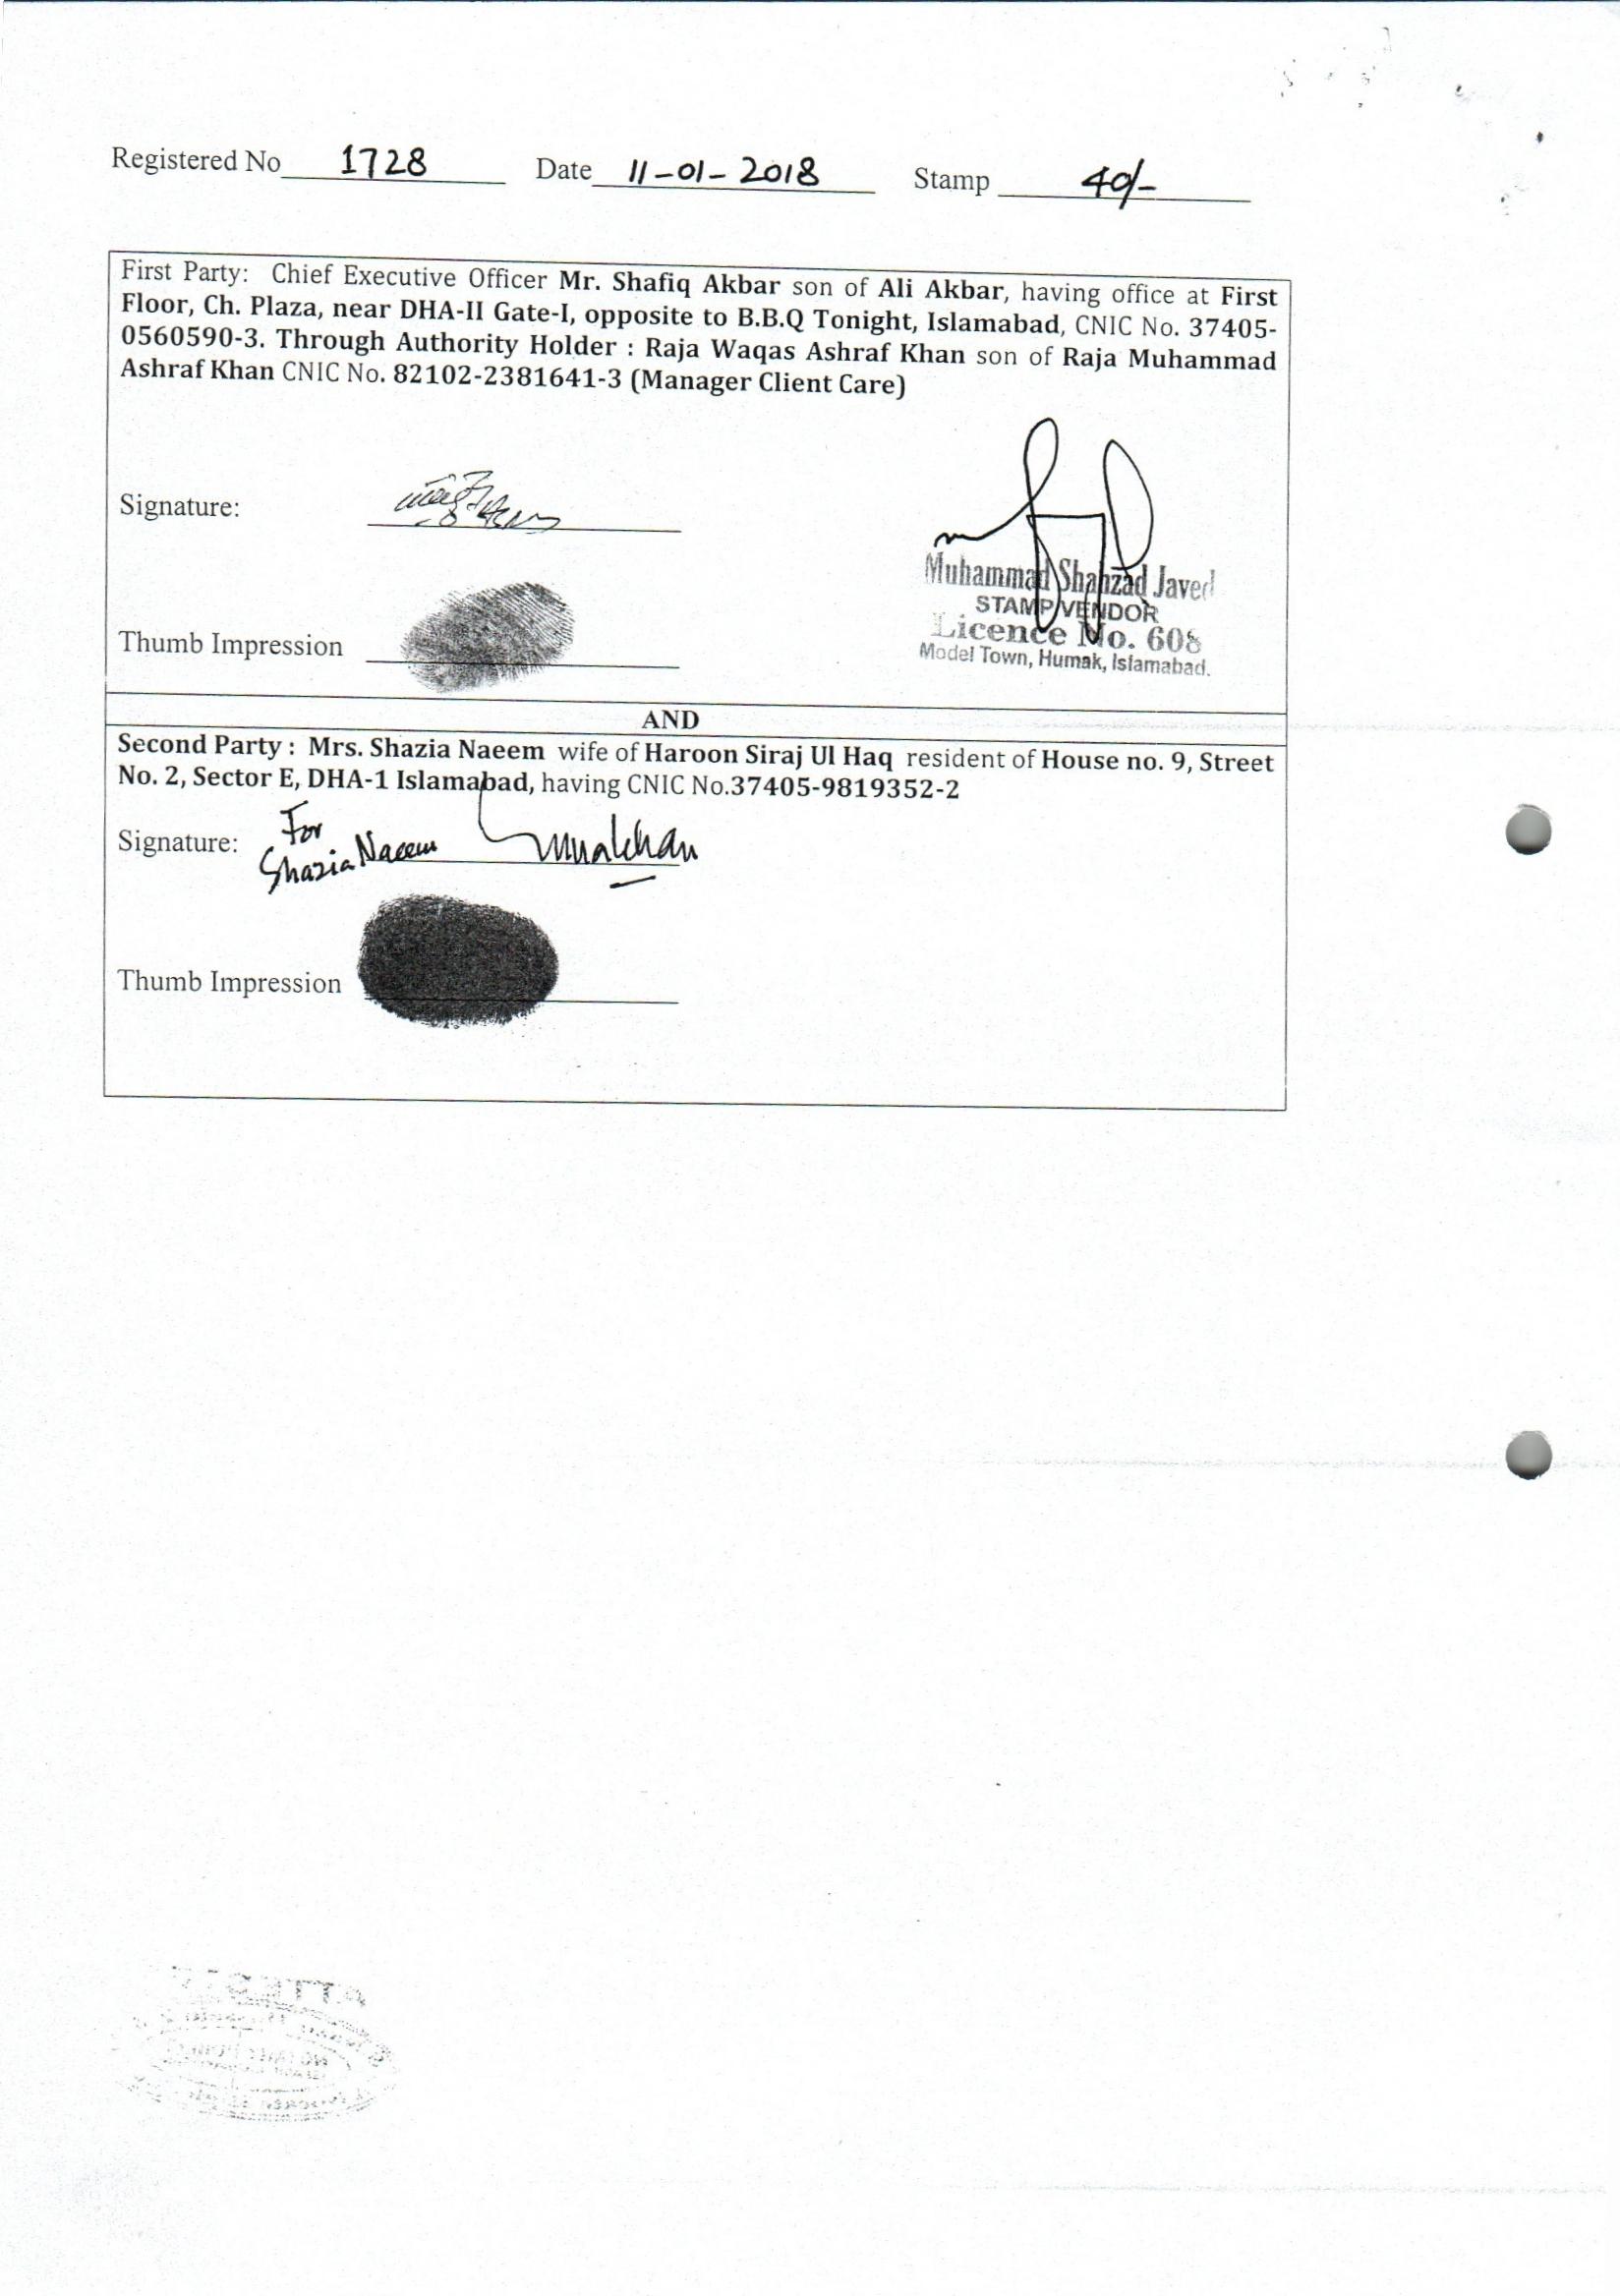 Registered No 1728 Date 11-01-2018 Stamp 40/-
First Party: Chief Executive Officer Mr. Shafiq Akbar son of Ali Akbar, having office at First
Floor, Ch. Plaza, near DHA-II Gate-I, opposite to B.B.Q Tonight, Islamabad, CNIC No. 37405-
0560590-3. Through Authority Holder : Raja Waqas Ashraf Khan son of Raja Muhammad
Ashraf Khan CNIC No. 82102-2381641-3 (Manager Client Care)
Signature:
Muhammad Shahzad Javed
STAMP VENDOR
Licence No. 608
Model Town, Humak, Islamabad.
Thumb Impression
AND
Second Party : Mrs. Shazia Naeem wife of Haroon Siraj Ul Haq resident of House no. 9, Street
No. 2, Sector E, DHA-1 Islamabad, having CNIC No.37405-9819352-2
Signature: For
Shazia Naeem
Thumb Impression